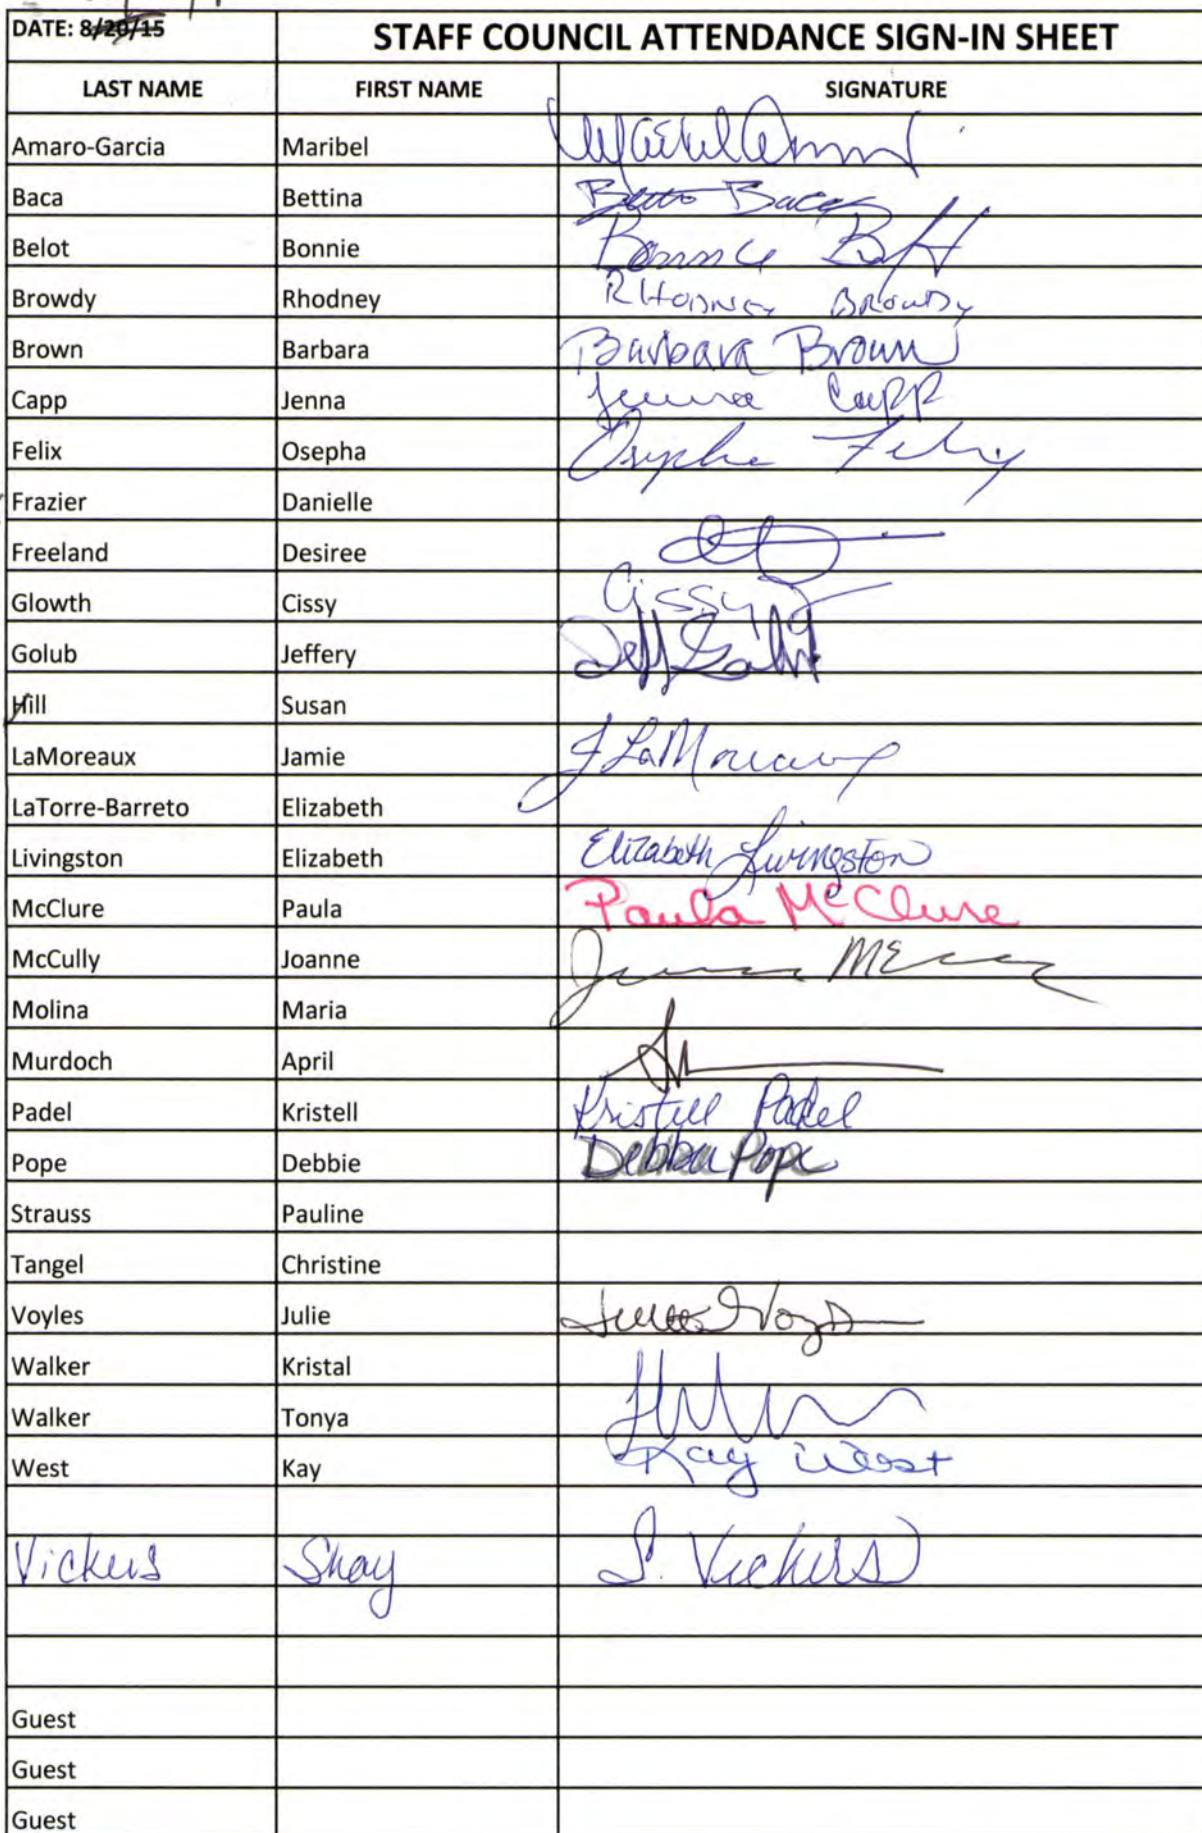 DATE: 8/20/15 STAFF COUNCIL ATTENDANCE SIGN-IN SHEET
LAST NAME FIRST NAME SIGNATURE
Amaro-Garcia Maribel
Baca Bettina Baca
Belot Bonnie Bonnie
Browdy Rhodney RHODNEY BROWDY
Brown Barbara Barbara Brown
Capp Jenna Jenna Capp
Felix Osepha Osepha Felix
Frazier Danielle
Freeland Desiree
Glowth Cissy Cissy
Golub Jeffery Jeff Golub
Hill Susan
LaMoreaux Jamie J LaMoreaux
LaTorre-Barreto Elizabeth
Livingston Elizabeth Elizabeth Livingston
McClure Paula Paula McClure
McCully Joanne
Molina Maria
Murdoch April
Padel Kristell Kristell Padel
Pope Debbie Debbie Pope
Strauss Pauline
Tangel Christine
Voyles Julie Julie
Walker Kristal
Walker Tonya
West Kay Kay West
Vickers Shay S. Vickers
Guest
Guest
Guest